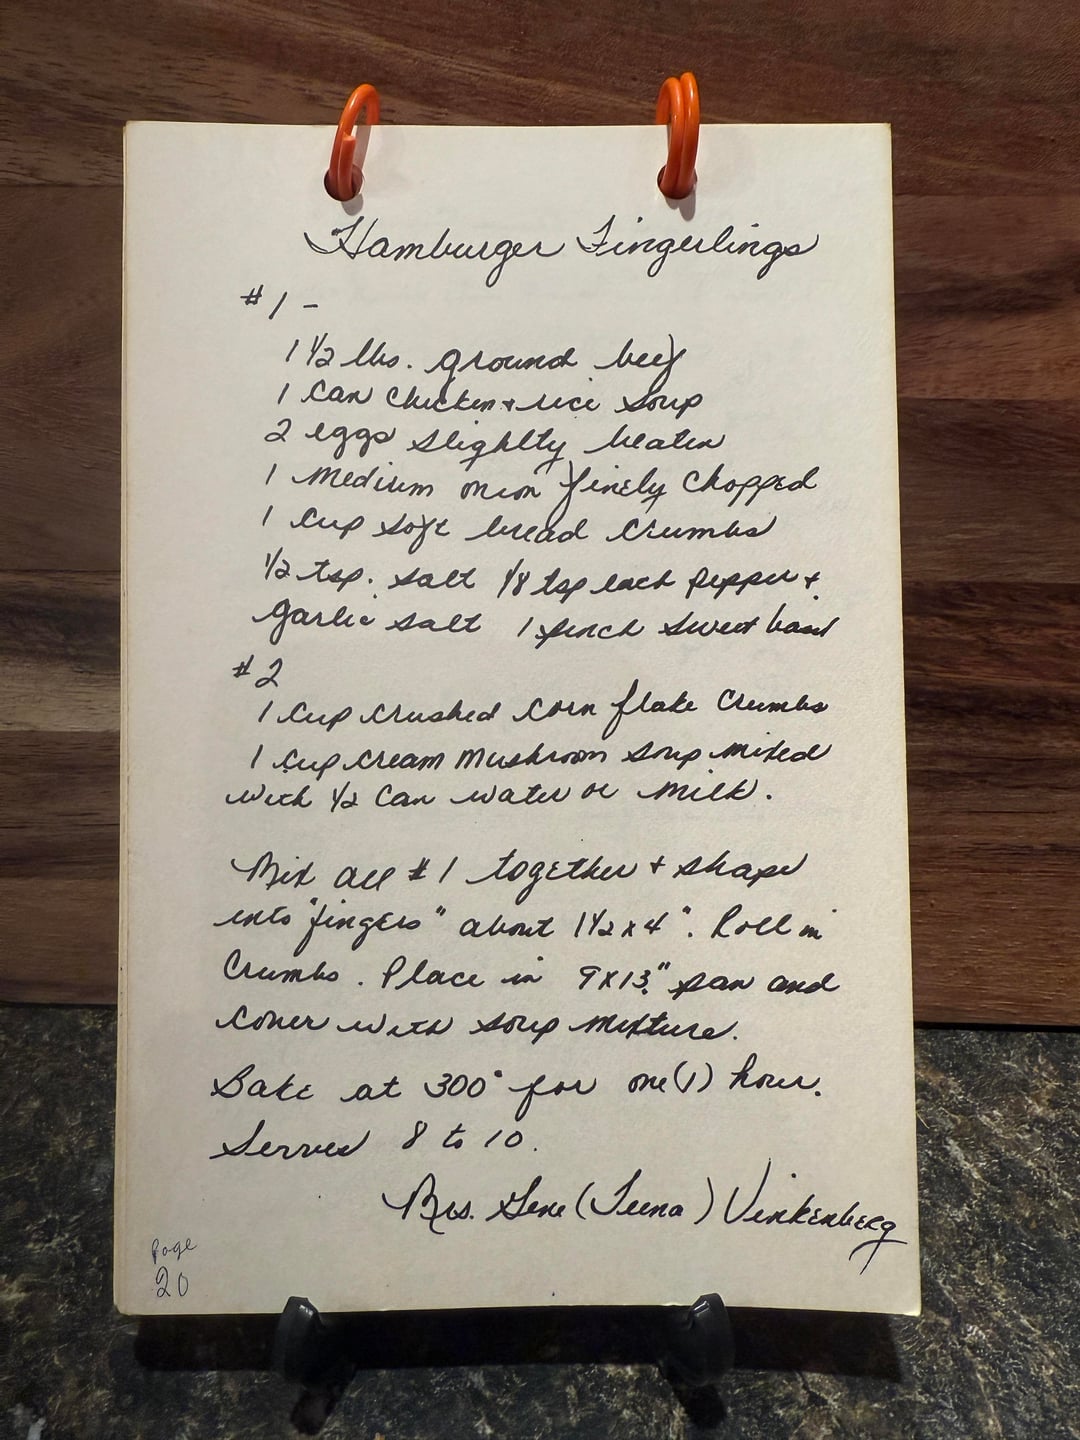 Hamburger Fingerlings
#1 -
1 1/2 lbs. ground beef
1 can chicken + rice soup
2 eggs slighlty beaten
1 medium onion finely chopped
1 cup soft bread crumbs
1/2 tsp. salt 1/8 tsp each pepper +
garlic salt 1 pinch sweet basil
#2
1 cup crushed corn flake crumbs
1 cup cream mushroom soup mixed
with 1/2 can water or milk.
Mix all #1 together + shape
into "fingers" about 1 1/2 x 4". Roll in
crumbs. Place in 9x13" pan and
cover with soup mixture.
Bake at 300° for one (1) hour.
Serves 8 to 10.
Mrs. Gene (Teena) Vinkenberg
Page
20